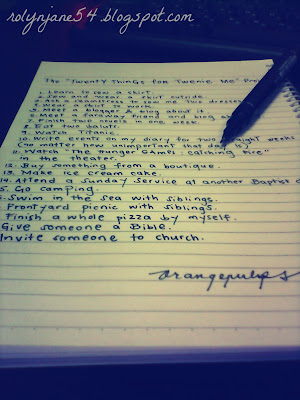 rolynjane54.blogspot.com
The "Twenty Things for Twenty Me" Pro
1. Learn to sew a skirt.
2. Sew and wear a skirt outside.
3. Ask a seamstress to sew me two dresses
4. Wear a skirt to work.
5. Meet a blogger & blog about it.
6. Meet a faraway friend and blog ab
7. Finish two novels in one week.
8. Buy two
9. Watch Titanic.
10. Write events on my diary for two straight weeks
(no matter how unimportant that day is)
11. Watch "The Hunger Games: Catching Fire"
in the theater.
12. Buy something from a boutique.
13. Make ice cream cake.
14. Attend a Sunday service at another Baptist c
5. Go camping.
Swim in the sea with siblings.
Frontyard picnic with siblings.
Finish a whole pizza by myself.
Give someone a Bible.
Invite someone to church.
orangepulps